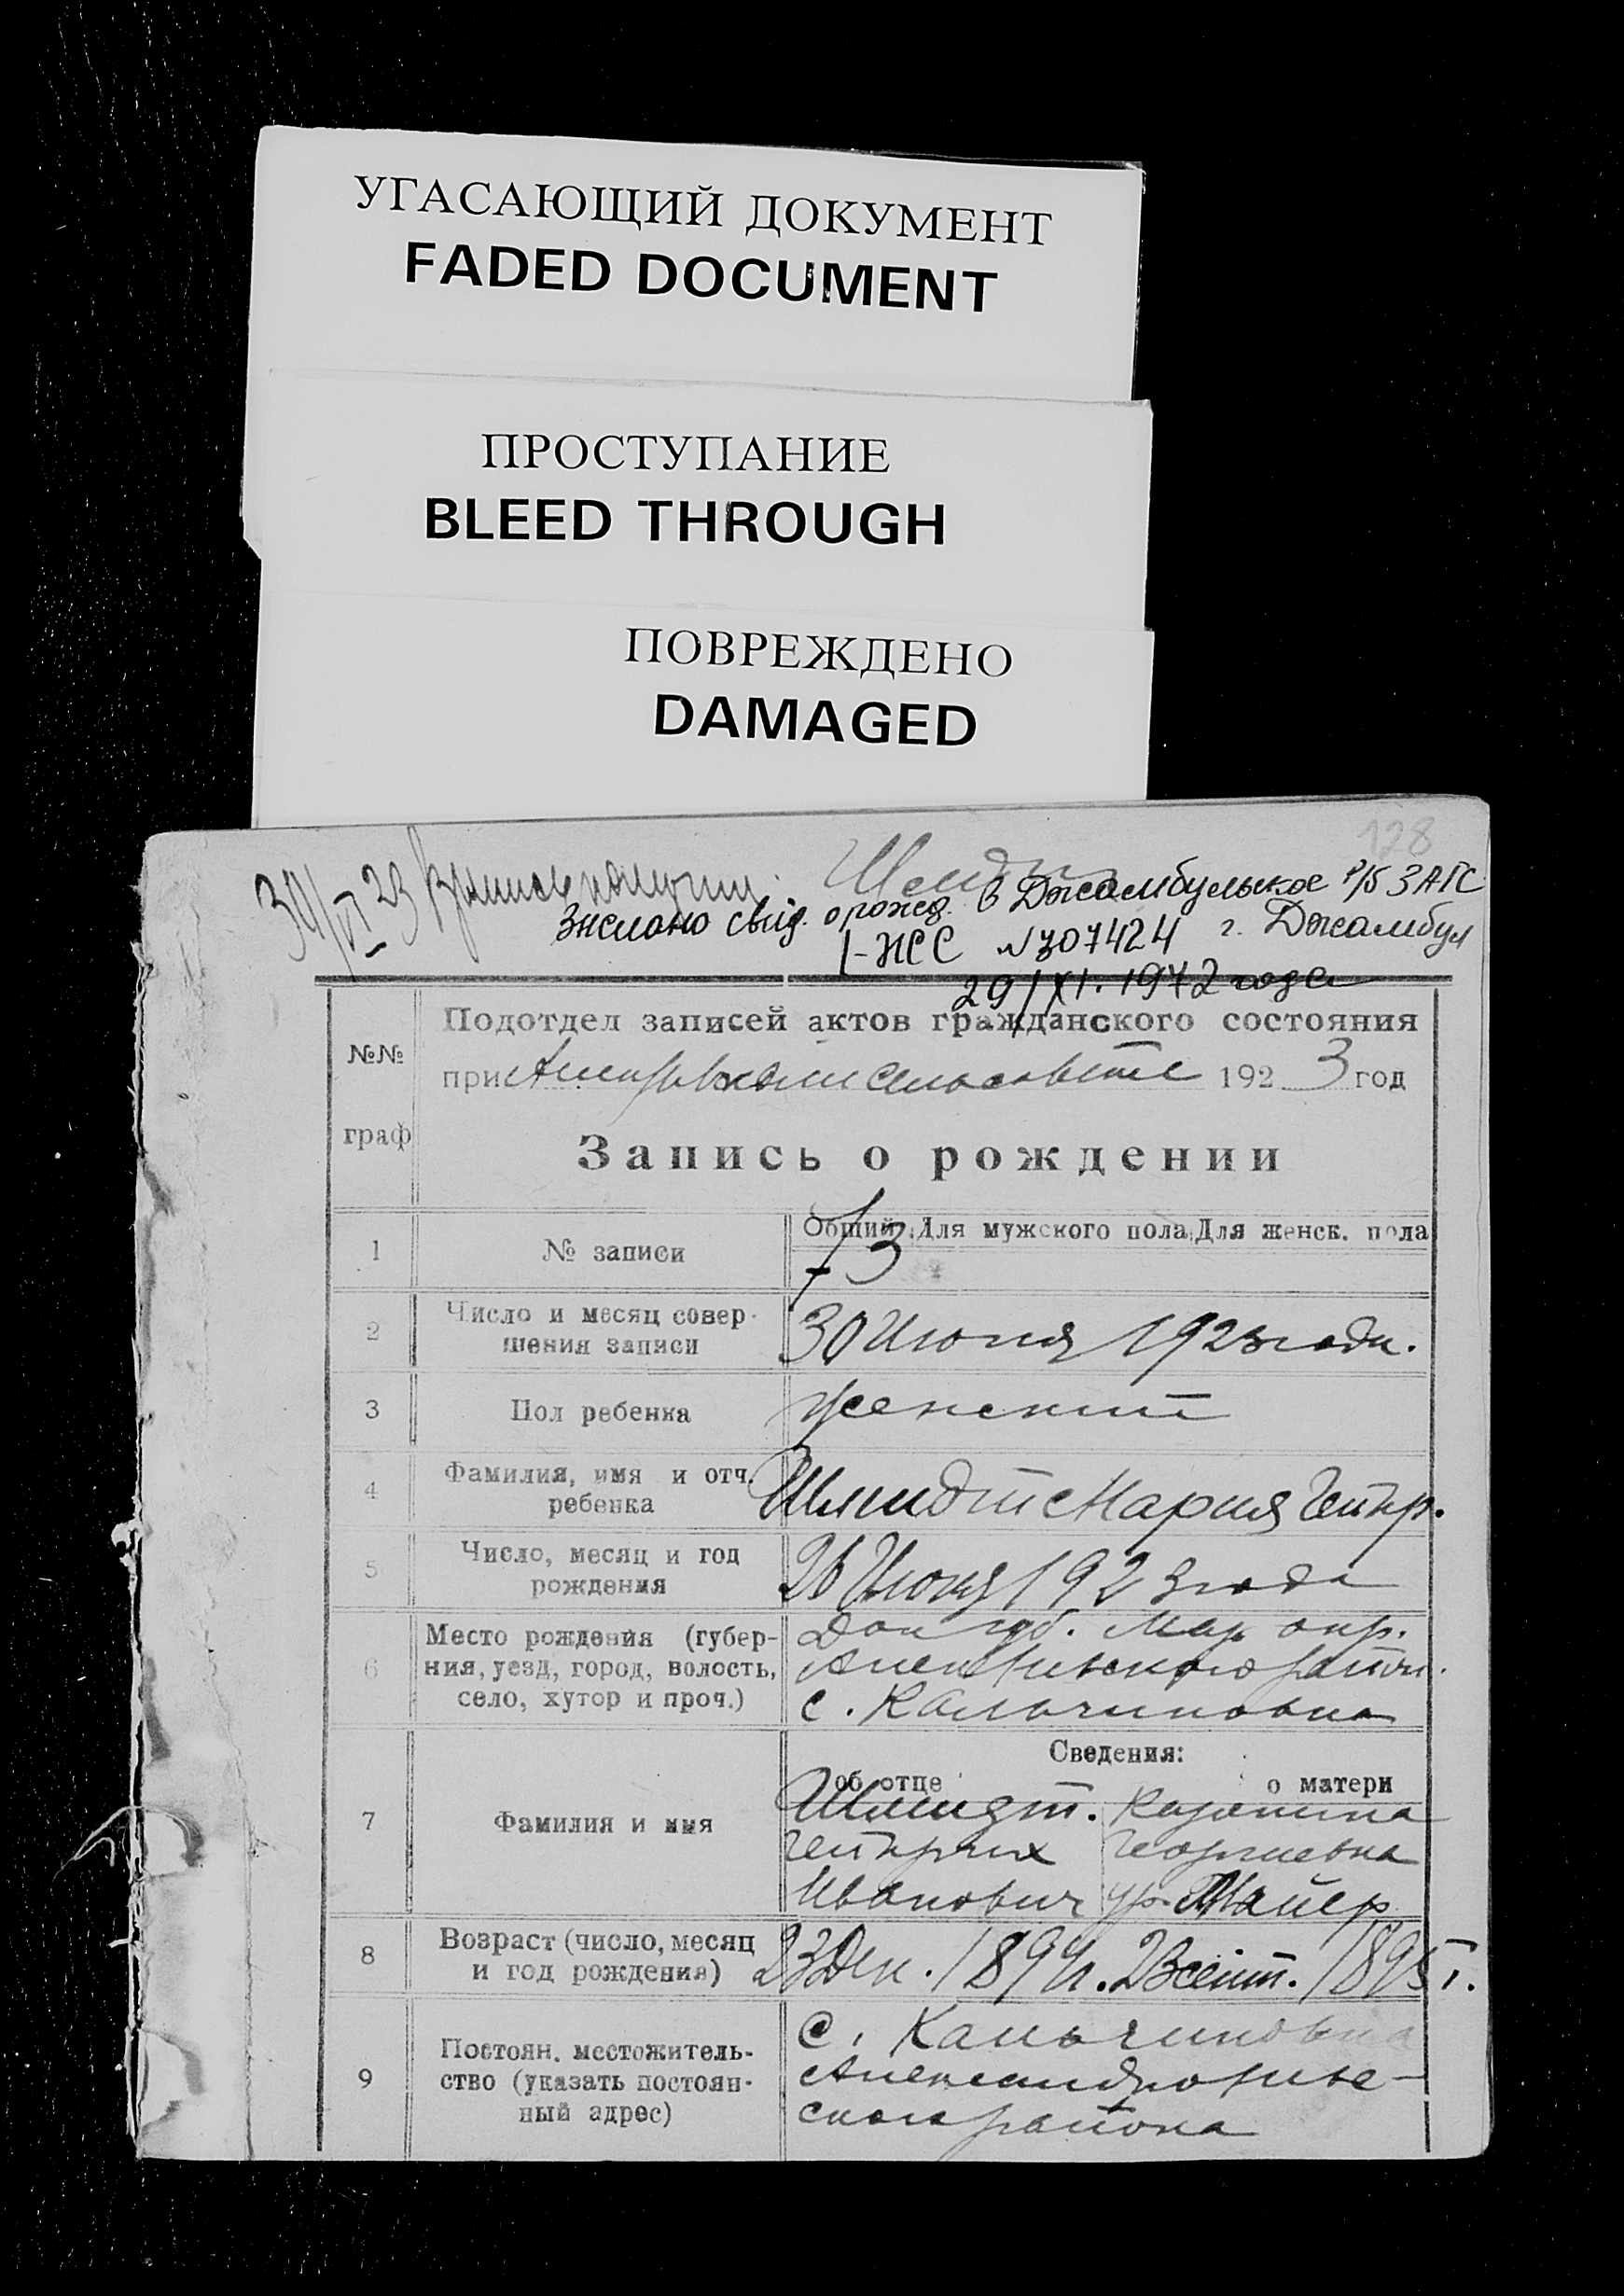 УГАСАЮЩИЙ ДОКУМЕНТ
FADED DOCUMENT
ПРОСТУПАНИЕ
BLEED THROUGH
ПОВРЕЖДЕНО
DAMAGED
128
30/VI 23
свид. о рожд. в Джамбульское р/б ЗАГС
№ 307424 г. Джамбул
29/XI. 1972 года
Подотдел записей актов гражданского состояния
№№
при сельсовете 1923 год
граф
Запись о рождении
Общий Для мужского пола Для женск. пола
1 № записи 73
2 Число и месяц совер-
шения записи 30 Июня 1923 года.
3 Пол ребенка Женский
4 Фамилия, имя и отч.
ребенка Шмидт Мария Гейнр.
5 Число, месяц и год
рождения 26 Июня 1923 года
6 Место рождения (губер- Дон губ. Мар. окр.
ния, уезд, город, волость, района
село, хутор и проч.) с. Кальчиновка
Сведения:
об отце о матери
7 Фамилия и имя Шмидт.
Гейнрих Георгиевна
Иванович ур. Майер
8 Возраст (число, месяц
и год рождения) 23 Дек. 1894 г. 23 сент. 1895 г.
9 Постоян. местожитель- с. Кальчиновка
ство (указать постоян- Александроневс-
ный адрес) ского района